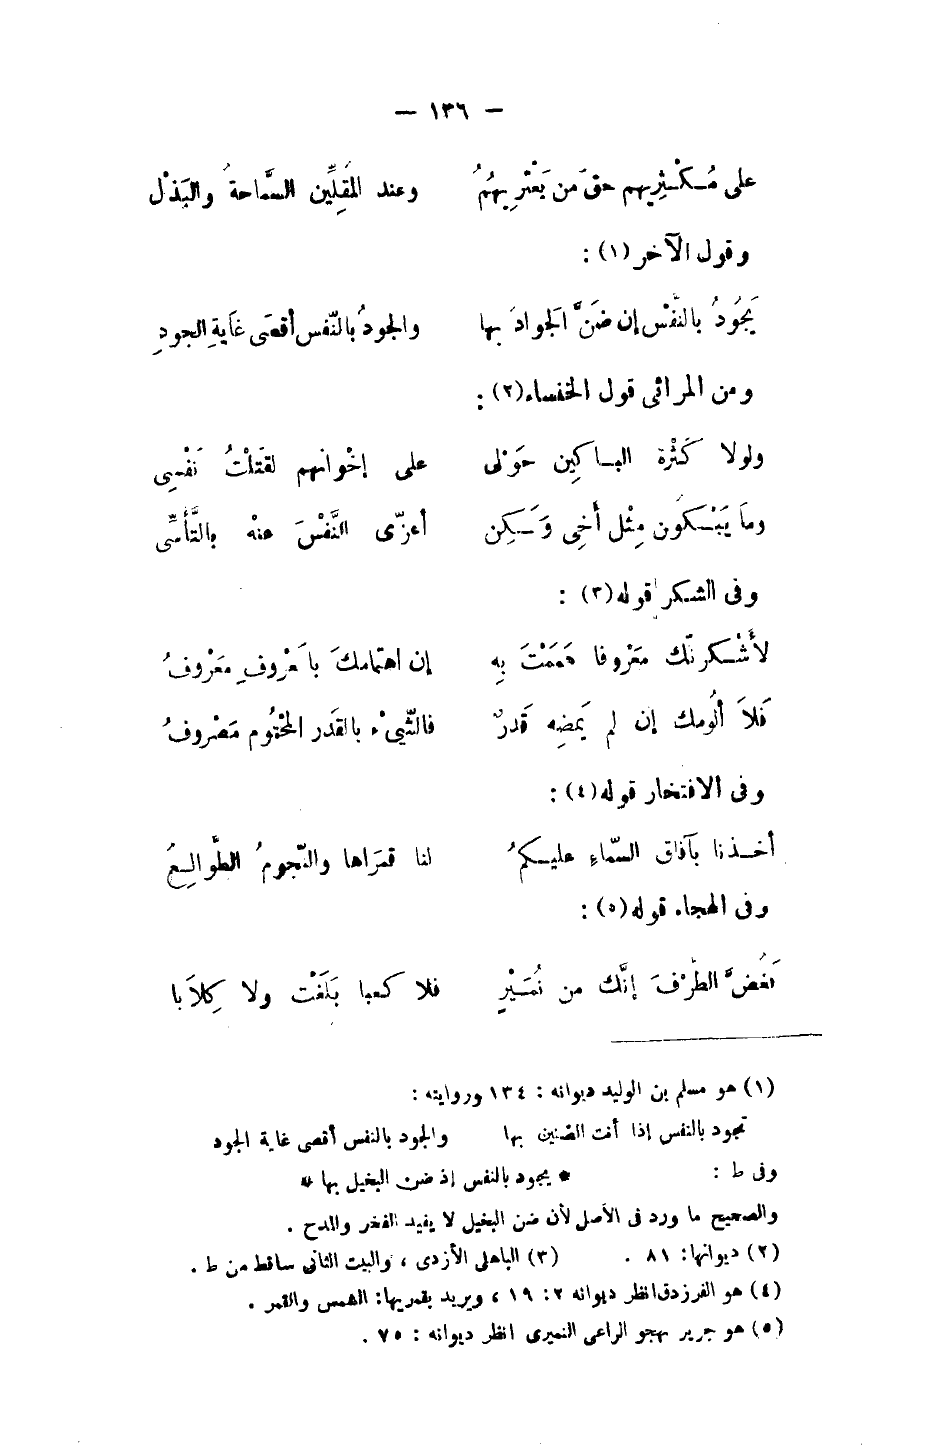 — ١٣٦ —
على مُكْثِرِيهم حقَ من يَعْترِيهُمُ وعند المُقِلِّين السَّماحةُ والبَذْل
وقول الآخر (١) :
يَجُودُ بالنَّفْس إن ضَنَّ الجوادَ بها والجودُ بالنّفس أقصَى غَايةِ الجودِ
ومن المراثى قول الخنساء (٢) :
ولولا كَثْرة الباكِين حَوْلى على إخْوانهم لقَتلْتُ نَفْسِى
ومَا يَبْكُون مِثْل أَخِى وَلَكِن أعزّى النَّفْسَ عنْه بالتَّأَسِّى
وفى الشكر قوله (٣) :
لأَشْكرنّك مَعْروفا هَمَمْتَ بِه إن اهتمامكَ بالَمعْروفِ مَعْروفُ
فَلاَ ألُومك إن لم يَمضِه قَدرٌ فالشّىْء بالقَدر المحْتُوم مَصْروفُ
وفى الافتخار قوله (٤) :
أخذنا بآفاق السّماءِ عليكمُ لنا قمَراها والنّجومُ الطَّوالعُ
وفى الهجاء قوله (٥) :
فَغُضَّ الطَّرْفَ إنَّك من نُمَيْرٍ فلا كعبا بَلَغْت ولا كِلاَبا
(١) هو مسلم بن الوليد ديوانه : ١٣٤ وروايته :
تجود بالنفس إذا أنت الضنين بها والجود بالنفس أقصى غاية الجود
وفى ط : * يجود بالنفس إذ ضن البخيل بها *
والصحيح ما ورد فى الأصل لأن ضن البخيل لا يفيد الفخر والمدح .
(٢) ديوانها : ٨١ . (٣) الباهلى الأزدى ، والبيت الثانى ساقط من ط .
(٤) هو الفرزدق انظر ديوانه ٢ : ١٩ ، ويريد بقمريها : الشمس والقمر .
(٥) هو جرير يهجو الراعى النميرى انظر ديوانه : ٧٥ .